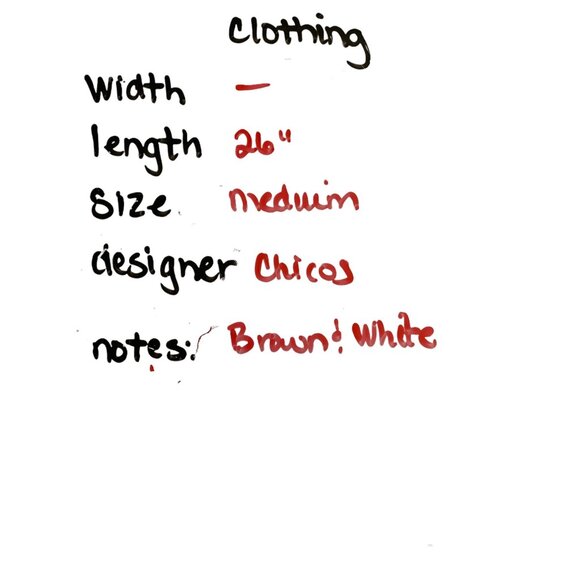 Clothing
Width —
length 26"
Size meduim
designer Chicos
notes: Brown & White